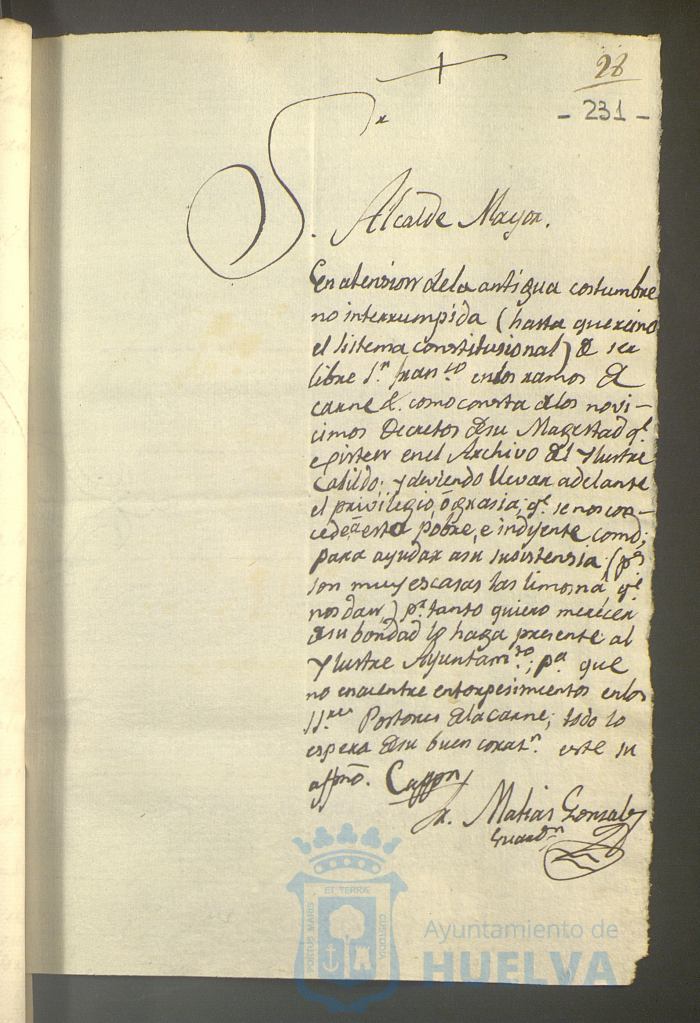 28
- 231 -
Sr.
Alcalde Mayor.
En atension dela antigua costumbre
no interrumpida (hasta que reino
el sistema constitusional) de ser
libre Sn. Fransco. enlos ramos de
carne &. como consta delos novi-
cimos Decretos desu Magestad qe.
existen enel Archivo del Ylustre
Cabildo; y deviendo llevar adelante
el privilegio, ó grasia, qe. se nos con-
cede á esta pobre, e indijente comd;
para ayudar asu susistensia (ps
son muy escasas las limosnas, qe.
nos dan) pr. tanto quiero merecer
desu bondad lo haga presente al
Ylustre Ayuntamto.; pa. que
no encuentre entorpesimientos enlos
SSres Postores dela carne; todo lo
espera desu buen corasn. este su
affmo. Cappn
Fr. Matias Gonzalez
Guardn
PORTUS MARIS ET TERRÆ CUSTODIA
Ayuntamiento de
HUELVA